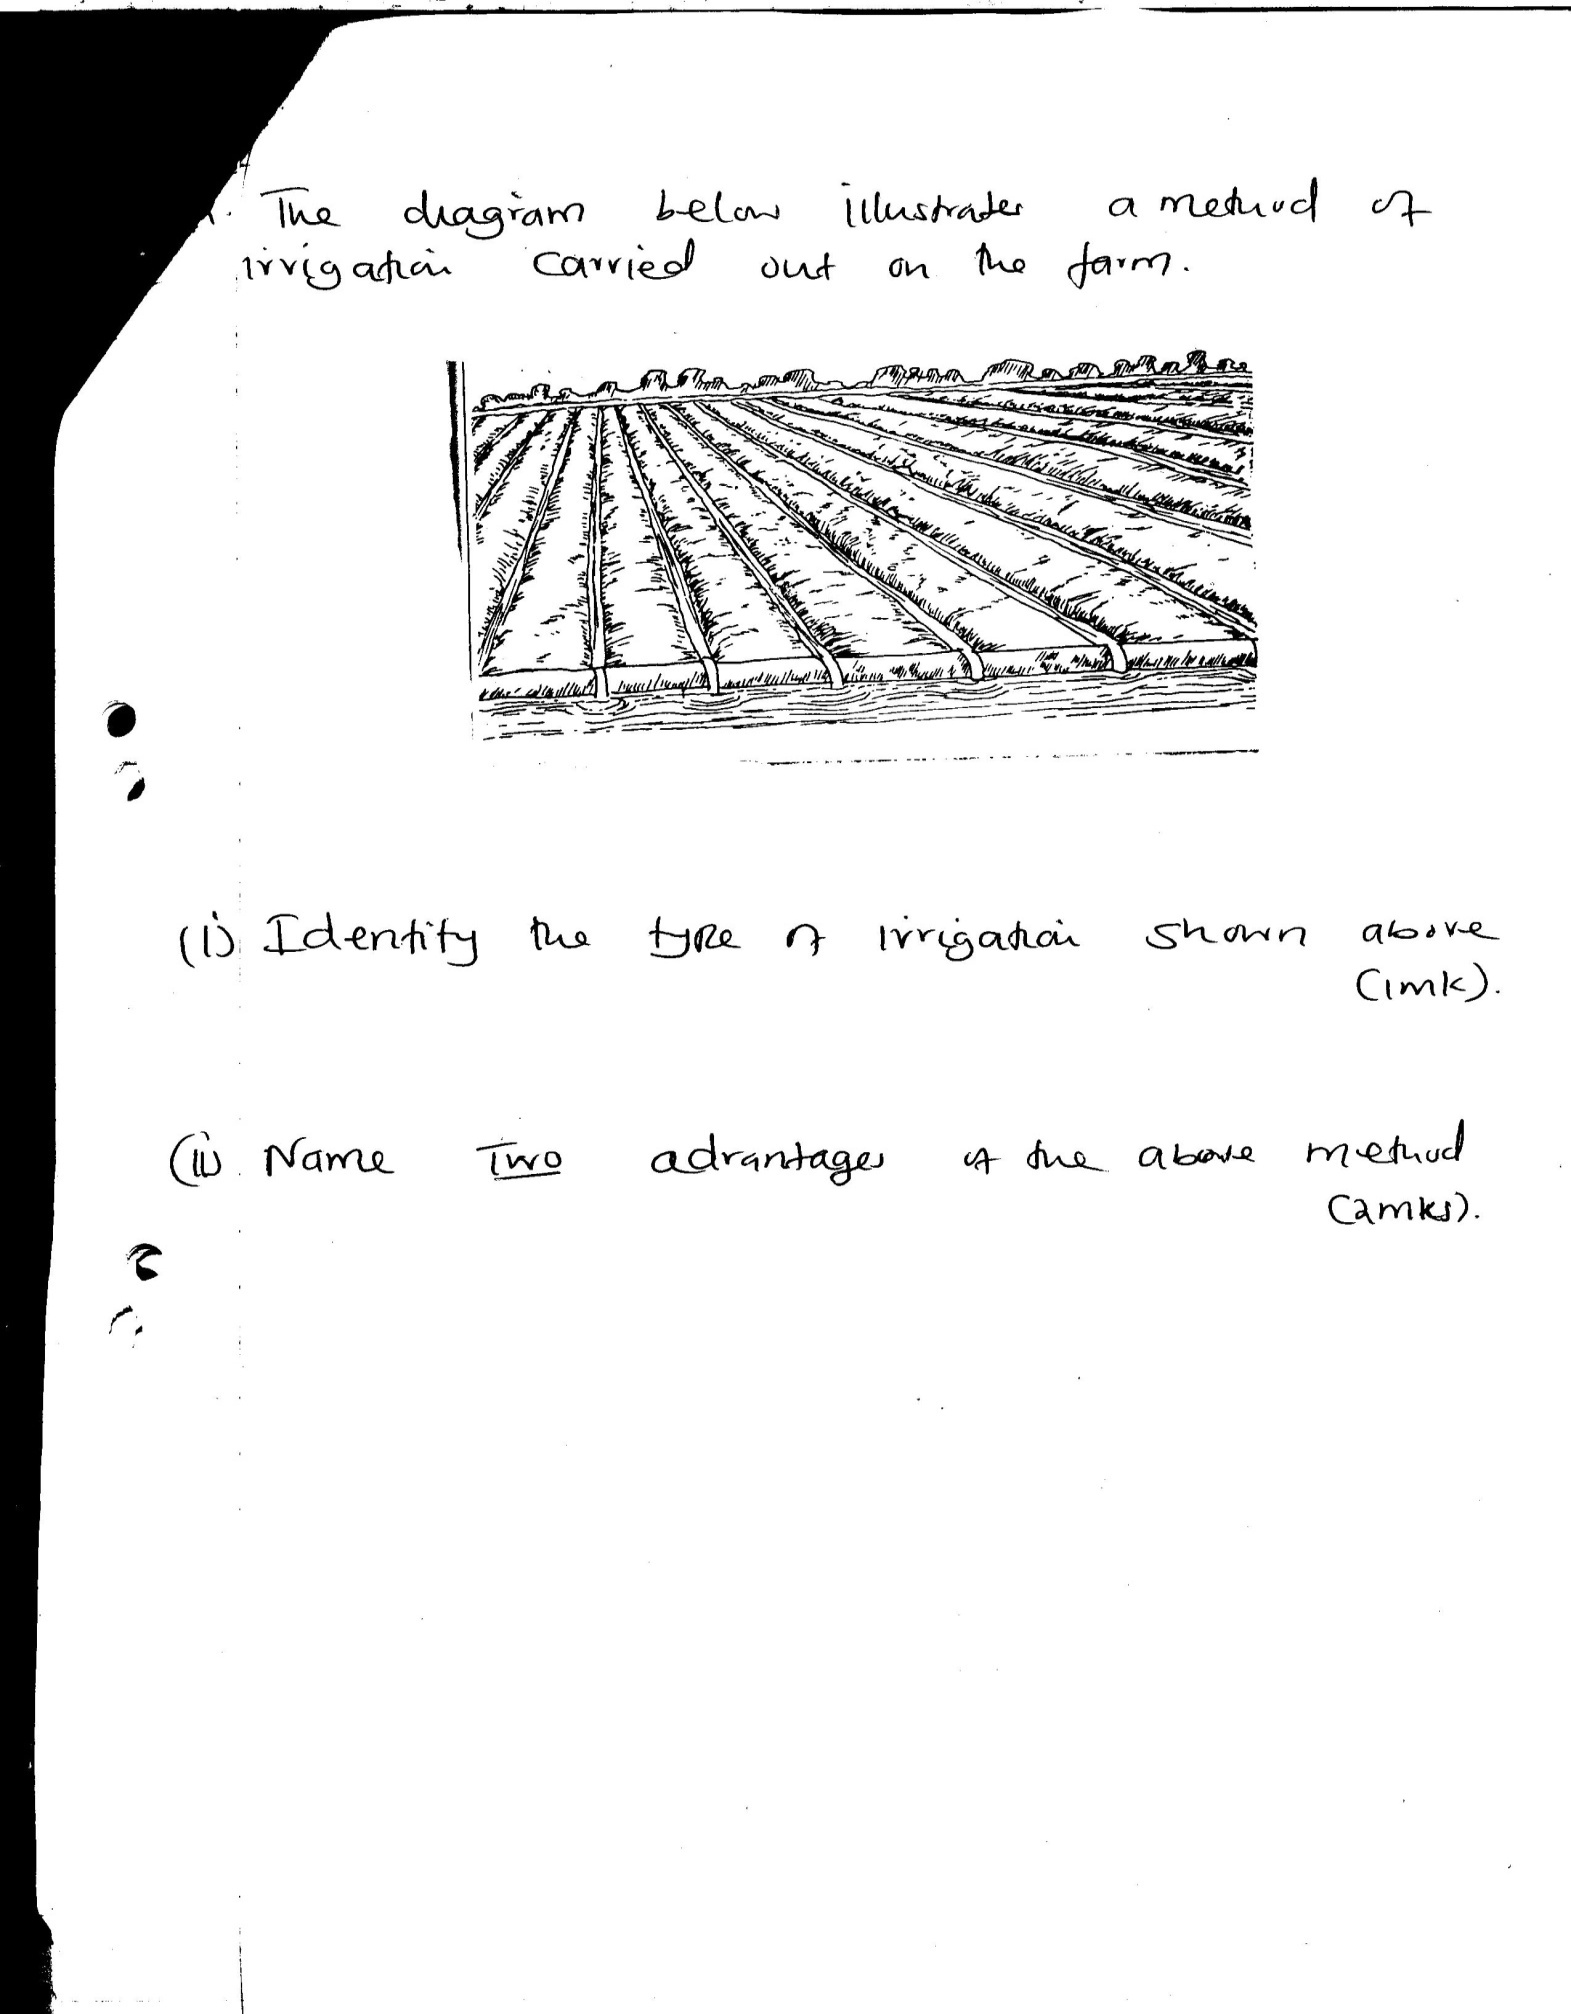 The diagram below illustrates a method of
irrigation carried out on the farm.
(i) Identify the type of irrigation shown above
(1mk).
(ii) Name Two advantages of the above method
(2mks).